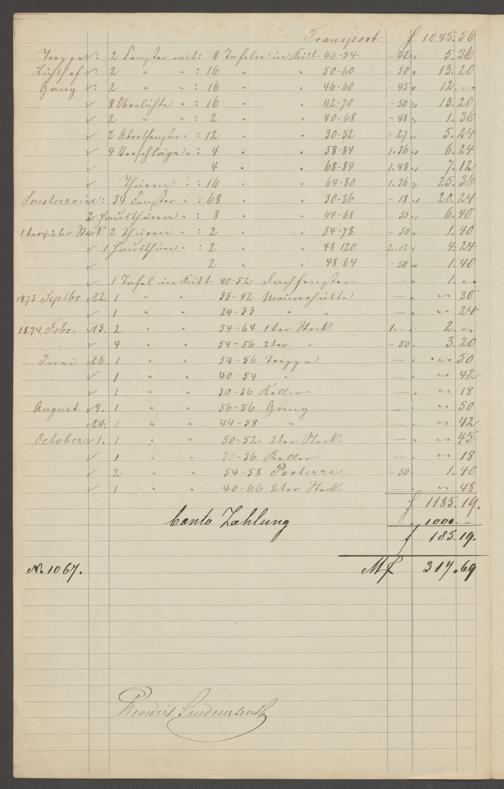 Transport f 1045.56
Treppe: 2 Fenster mit: 8 Tafeln in Kitt 40-54 42 5.36
Lichthof: 2 " " : 16 " " 50-60 -50 13.20
Gang: 2 " " : 16 " " 46-60 -45 12.-
8 Oberlichte : 16 " " 42-70 -50 13.20
2 " : 2 " " 40-68 -48 1.36
2 : 12 " " 30-52 -27 5.24
4 Verschläge : 4 " " 58-84 1.36 6.24
4 " " 68-84 1.48 7.12
Thüren : 16 " " 64-80 1.36 25.36
34 Fenster : 68 " " 30-36 -18 20.24
2 Hausthüren : 8 " " 44-68 50 6.40
1ter & 2ter Stock 2 Thüren : 2 " " 34-78 -50 1.40
1 Hausthür : 2 " " 48 120 2.12 4.24
2 " " 48-64 -50 1.40
1 Tafel in Kitt 40-52 Dachfenster — 1.-
1873 Sept 22. 1 " " 33-42 — 30
1 " " 24-33 " — 24
1874 Febr. 13. 2 " " 54-64 1ter Stock 1.- 2.-
4 " " 54-56 2ter " -50 3.20
Juni 26 1 " " 54-56 Treppe — 50
1 " " 40-54 " — 42
1 " " 30-36 Keller — 18
August 8. 1 " " 56-56 Gang — 50
24. 1 " " 44-58 " — 42
October 1. 1 " " 50-52 2ter Stock — 45
1 " " 30-36 Keller — 18
2 " " 54-58 Parterre -50 1.40
1 " " 40-66 2ter Stock — 48
f 1185.19.
Conto Zahlung " 1000.-
f 185.19.
N. 1067. Mf 317.69